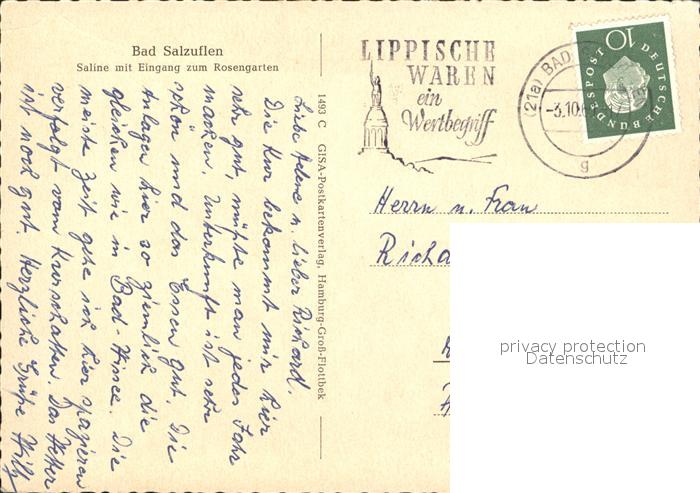 Bad Salzuflen
Saline mit Eingang zum Rosengarten
Liebe Helene u. lieber Richard.
Die Kur bekommt mir hier
sehr gut, müßte man jedes Jahr
machen. Unterkunft ist sehr
schön und das Essen gut. Die
Anlagen hier so ziemlich die
gleichen wie in Bad-. Die
meiste Zeit gehe ich hier spazieren
verfolgt vom Kurschatten. Das Wetter
ist noch gut. Herzliche Grüße Willy
1493 C GISA-Postkartenverlag, Hamburg-Groß-Flottbek
LIPPISCHE
WAREN
ein
Wertbegriff
(21a) BAD
-3.10.
g
DEUTSCHE BUNDESPOST
10
Herrn u. Frau
Richa
privacy protection
Datenschutz